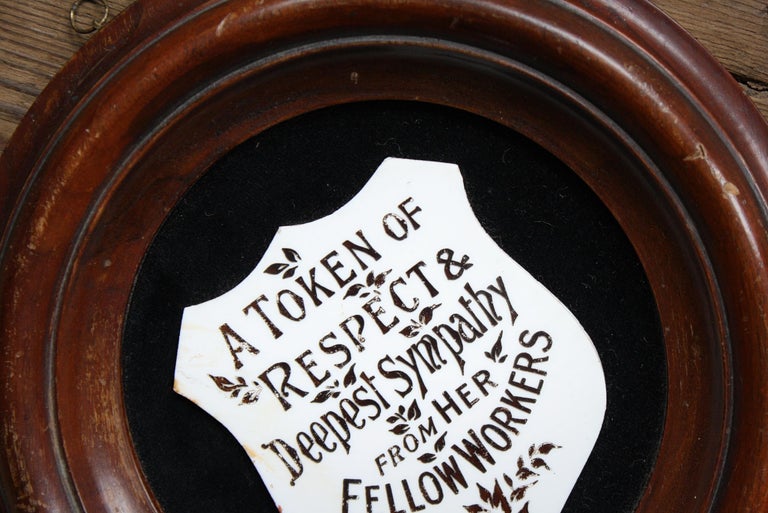 A TOKEN OF
RESPECT &
Deepest Sympathy
FROM HER
FELLOW WORKERS